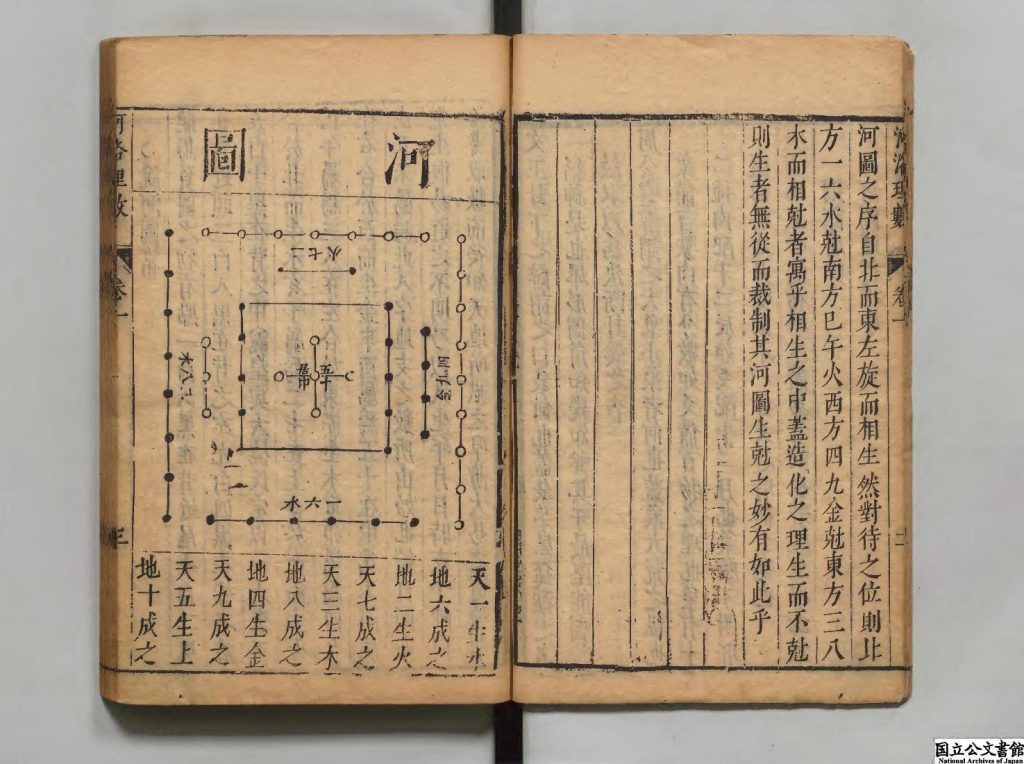 河洛理數 卷一 二
河圖之序自北而東左旋而相生然對待之位則北
方一六水尅南方巳午火西方四九金尅東方三八
木而相尅者寓乎相生之中蓋造化之理生而不尅
則生者無從而裁制其河圖生尅之妙有如此乎
河圖
二七火
五十中
一六水
天一生水
地六成之
地二生火
天七成之
天三生木
地八成之
地四生金
天九成之
天五生土
地十成之
河洛理數 卷一 三
国立公文書館
National Archives of Japan